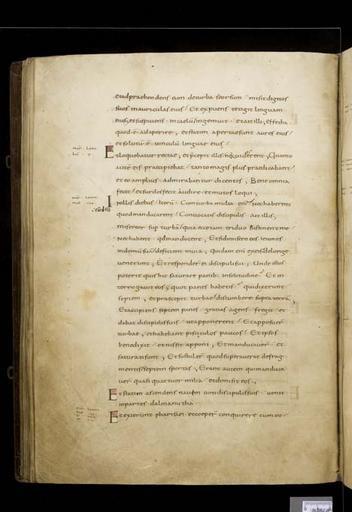 et adpraehendens eum deturba seorsum misit digitos
suos inauriculas eius Et expuens tetigit linguam
eius, et suspiciens incaelum ingemuit et ait illi, effeta
quod e adaperire, et statim apertae sunt aures eius
et solutu e vinculu linguae eius
Et loquebatur recte, et precepit illis
eis precipiebat tanto magis plus praedicabant
et eo amplius admirabantur dicentes, Bene omnia
fecit et surdos fecit audire et mutos loqui,
illis diebus iteru Cum turba multa nec haberent
quod manducarent Conuocatis discipulis ait illis,
misereor sup turba quia ecce iam triduo sustinent me
nec habent qd manducent, Et si dimisero eos ieiunos
indomu sua deficient in uia, quidam eni ex eis delonge
uenerunt, Et responder ei discipuli sui, Unde istos
poterit quis hic saturare panib; insolitudine Et in
terrogauit eos quot panes habetis qui dixerunt
septem, et praecepit turbae discumbere supra terra,
Et accipiens septem panes gratias agens fregit et
dabat discipulis suis ut apponerent Et apposuer
turbae, et habebant pisciculos paucos Et ipsos
benedixit et iussit apponi, Et manducauer et
saturati sunt, Et sustuler quod superauerat defrag
mentis septem sportas, Erant autem qui manduca
uer quasi quattuor milia et dimisit eos,
Et statim ascendens nauem cum discipulis suis uenit
inpartes dalmanutha
Et exierunt pharisei et coeper conquirere cum eo